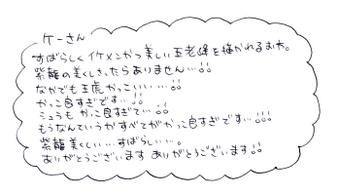 ケーさん
すばらしくイケメンかつ美しい五老峰を描かれるお方。
紫龍の美しさったらありません…!!
なかでも王虎かっこいい…!!
かっこ良すぎです…!!
シュラもかっこ良すぎて…!!
もうなんていうかすべてがかっこ良すぎです…!!
紫龍美しい…すばらしい…。
ありがとうございますありがとうございます!!